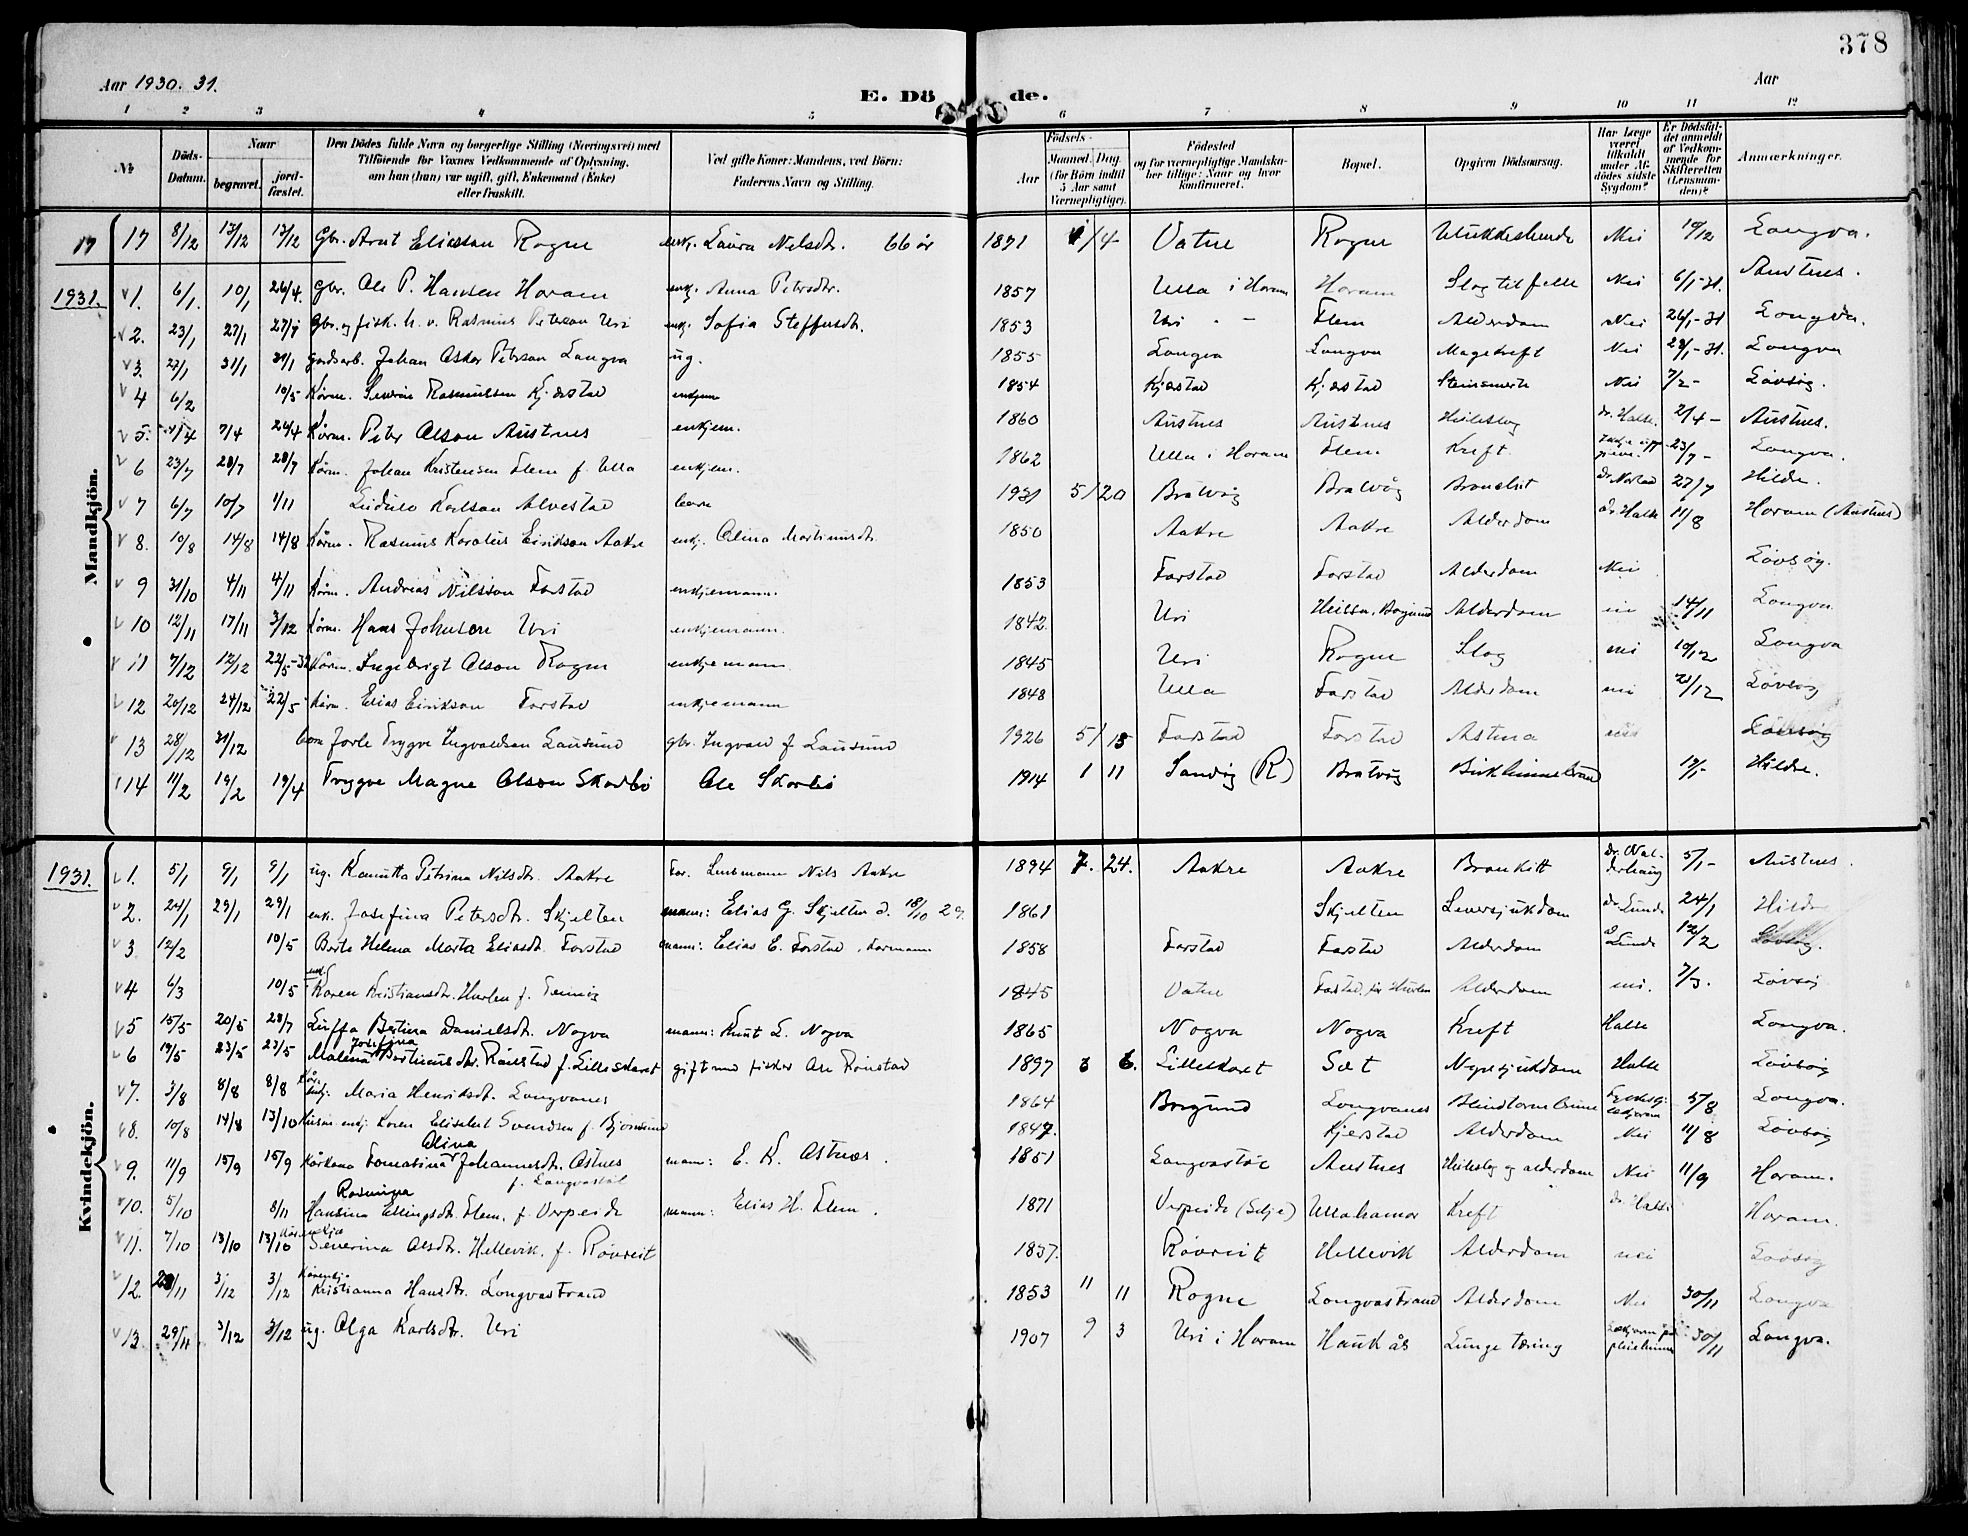 378
Aar 1930. 31.
E. Dö de.
Aar
1 2 3 4 5 6 7 8 9 10 11 12
№
Döds-Datum.
Naar
begravet.
jord-fæstet.
Den Dödes fulde Navn og borgerlige Stilling (Næringsvei) med
Tilföiende for Voxnes Vedkommende af Oplysning,
om han (hun) var ugift, gift, Enkemand (Enke)
eller fraskilt.
Ved gifte Koner: Mandens, ved Börn:
Faderens Navn og Stilling.
Födsels-
Aar
Maaned. Dag.
(for Börn indtil
5 Aar samt
Værnepligtige).
Födested
og for værnepligtige Mandska-
ber tillige: Naar og hvor
konfirmeret.
Bopæl.
Opgiven Dödsaarsag.
Har Læge
været
tilkaldt
under Af-
dödes sidste
Sygdom?
Er Dödsfal-
det anmeldt
af Vedkom-
mende for
Skifteretten
(Lensman-
den)?
Anmærkninger.
Mandkjön.
17 17 8/12 13/12 13/12 Gbr. Arnt Eliassen Rogne enkj. Laura Nilsdtr. 66 år 1871 /4 Vatne Rogne Ulukkeshende Nei 10/12 Longva.
1931. 1. 6/1 10/1 26/4 Gbr. Ole P. Hansen Haram enkj. Anna Petersdtr. 1857 Ulla i Haram Haram Slagtilfelle Nei 6/1-31. Austnes.
2. 23/1 27/1 27/1 Gbr. og fisk. Rasmus Peterson Uri enkj. Sofia Steffensdtr. 1853 Uri - Flem Alderdom Nei 26/1-31 Longva.
3. 27/1 31/1 31/1 Gardsarb. Johan Asker Peterson Longva ug. 1855 Longva Longva Magekreft Nei 28/1-31. Longva
4 6/2 10/5 Kårm. Severin Rasmussen Kjerstad enkjem 1854 Kjerstad Kjerstad Steinsmerte Nei 7/2- Lövsøy.
5. 1/4 7/4 26/4 Kårm. Peter Olson Austnes enkjem. 1860 Austnes Austnes Heileslag dr. Halse. 2/4- Austnes.
6 23/7 28/7 28/7 Kårm. Johan Kristensen Flem f. Ulla enkjem. 1862 Ulla i Haram Flem Kreft 23/7- Longva.
7 6/7 10/7 1/11 Karlson Alvestad barn 1931 5/20 Bratvåg Bratvåg Bronchit 27/7 Hildre.
8. 10/8 14/8 14/8 Kårm. Rasmus Karolus Eirikson Aakre enkj. Olina Martinusdtr. 1850 Aakre Aakre Alderdom dr. Halse 11/8 Haram (Austnes)
9 31/10 4/11 4/11 Kårm. Andreas Nilsson Farstad enkjemann. 1853 Farstad Farstad Alderdom Nei Lövsøy.
10 12/11 17/11 3/12 Kårm. Hans Johnsen Uri enkjemann. 1842. Uri Heissa, Borgund Alderdom 14/11 Longva
11 7/12 12/12 22/5-32 Kårm. Ingebrigt Olson Rogne enkjemann 1845 Uri Rogne Slag nei 10/12 Longva
12 20/12 24/12 22/5 Kårm. Elias Eirikson Farstad enkjemann 1848 Ulla Farstad Alderdom nei 21/12 Lövsøy
13 28/12 31/12 barn Jarle Trygve Ingvaldson Gausund gbr. Ingvald f. Gausund 1926 5/15 Farstad Farstad Astma nei Lövsøy
14 11/2 19/2 19/4 Trygve Magne Olson Skorbö Ole Skorbö 1914 1 11 Sandøy (R) Bratvåg 12/1- Hildre.
Kvindekjön.
1931. 1. 5/1 9/1 9/1 ug. Kanutta Petrina Nilsdtr. Aakre Far. Lensmann Nils Aakre 1894 7. 24. Aakre Aakre Bronkitt dr. Wal-derhaug 5/1- Austnes.
2. 24/1 29/1 29/1 enk. Josefina Petersdtr. Skjelten mann: Elias G. Skjelten d. 18/10 29. 1861 Skjelten Leversjukdom dr. Lunde 24/1 Hildre
3 12/2 10/5 Berte Helena Marta Eliasdtr. Farstad mann: Elias E. Farstad, kårmann 1858 Farstad Farstad Alderdom Lunde 12/2 Lövsøy.
4 6/3 10/5 Karen Kristiansdtr. Hurlen f. Tennøy 1845 Vatne Farstad, før Hurlen Alderdom nei. 7/3. Lövsøy
5 15/5 20/5 28/7 Luffa Bertina Danielsdtr. Nogva mann: Knut L. Nogva 1865 Nogva Nogva Kreft Halse Longva.
6 19/5 23/5 23/5 Malena Josefina Bertinusdtr. Rönstad f. Lilleskaret gift med fisker Ole Rönstad 1897 3 6. Lilleskaret Sæt Nyresjukdom Halse Lövsøy
7. 3/8 8/8 8/8 Maria Henriksdtr. Longvanes 1864 Borgund Longvanes 5/8 Longva.
8. 10/8 14/8 13/10 enkj. Karen Elisabet Svendsen f. Bjørnsund 1847. Kjerstad Alderdom Nei 11/8 Lövsøy
9. 11/9 15/9 15/9 Kårkona Tomasina Olina Johannesdtr. Astnes f. Longvastøl mann: E. K. Astnes. 1851 Longvastöl Austnes Heileslag og alderdom Nei 11/9 Haram.
10. 5/10 8/11 Hansina Rasmina Ellingsdtr. Flem. f. Verpeide mann: Elias H. Flem. 1871 Verpeide (Selje) Ullahamar Kreft dr. Halse Haram.
11. 7/10 13/10 13/10 Kårenkja Severina Olsdtr. Hellevik. f. Rövreit 1837. Rövreit Hellevik Alderdom nei Lövsøy
12. 28/11 3/12 3/12 Kårenkja Kristianna Hansdtr. Longvastrand 1853 11 11 Rogne Longvastrand Alderdom Nei 30/11 Longva
13. 29/11 3/12 3/12 ug. Olga Karlsdtr. Uri 1907 9 3 Uri i Haram Haukås Lunge tæring 30/11 Longva.